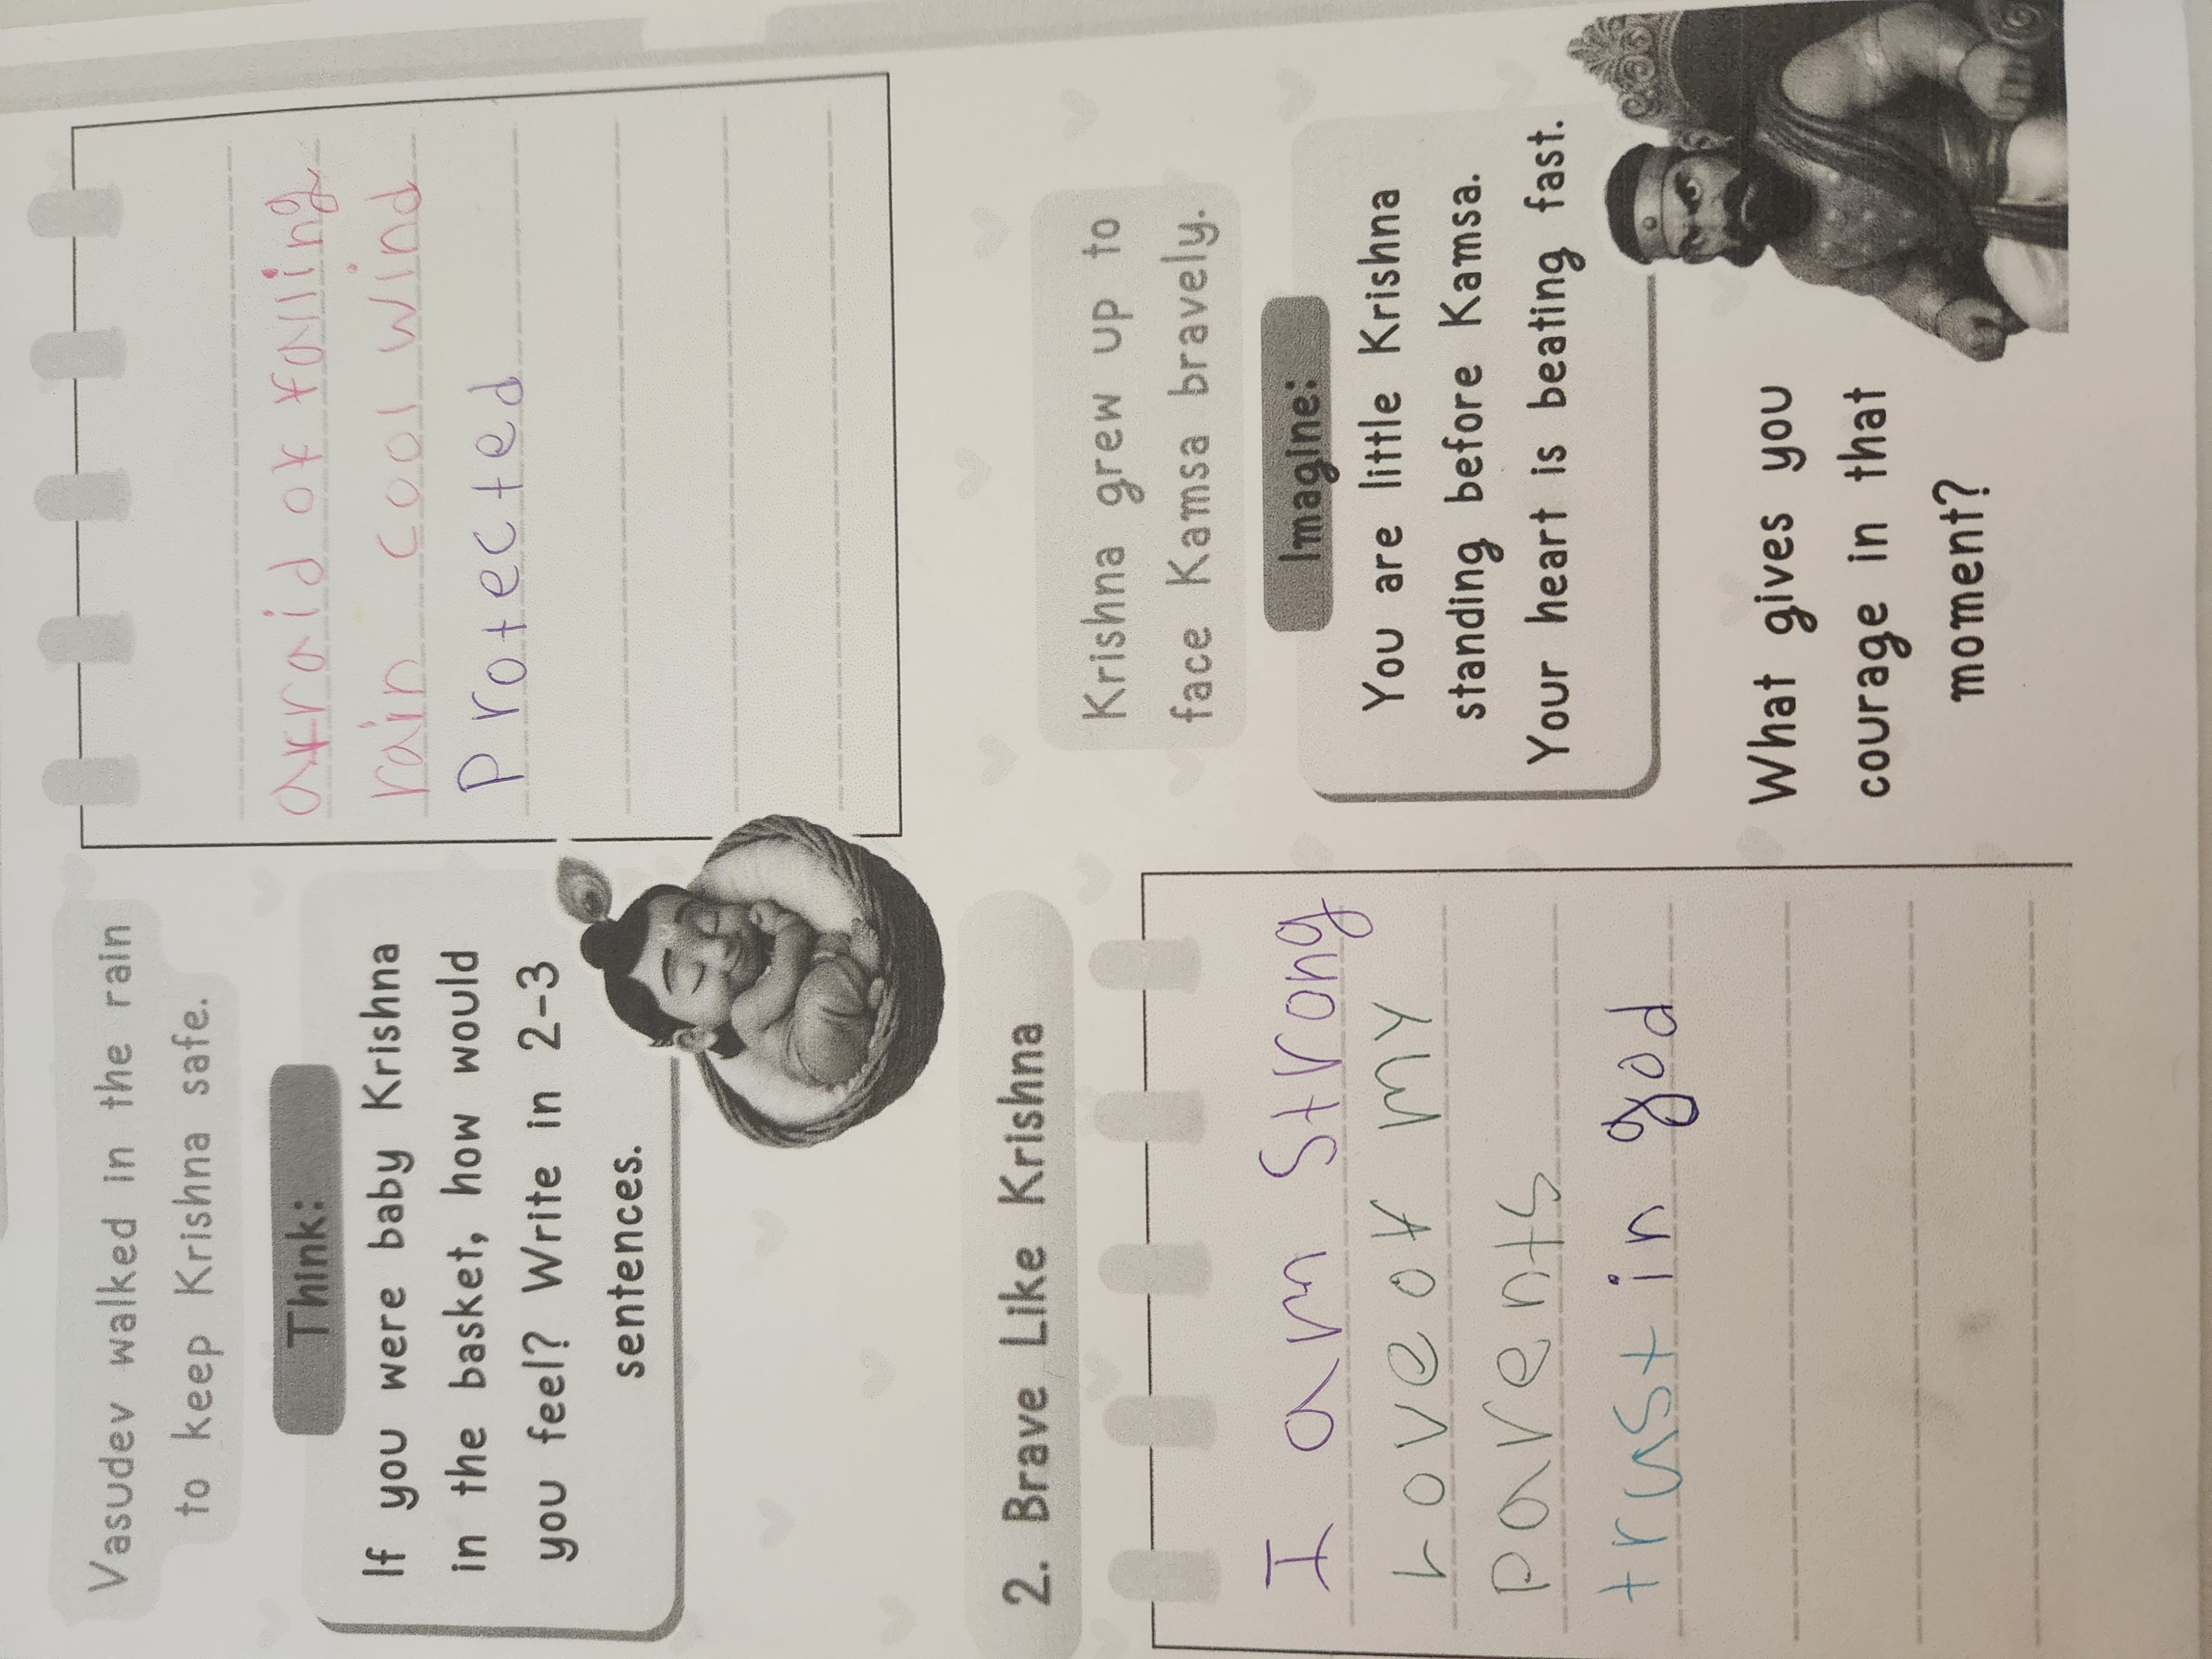 Vasudev walked in the rain
to keep Krishna safe.
Think:
If you were baby Krishna
in the basket, how would
you feel? Write in 2-3
sentences.
afraid of falling
rain cool wind
Protected
2. Brave Like Krishna
I am Strong
Love of my
parents
trust in god
Krishna grew up to
face Kamsa bravely.
Imagine:
You are little Krishna
standing before Kamsa.
Your heart is beating fast.
What gives you
courage in that
moment?